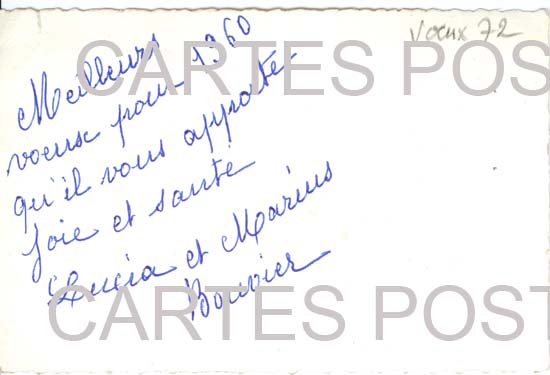 voeux 72
CARTES POST
Meilleurs
voeux pour 1960
qu'il vous apporte
Joie et santé
Lucia et Marius
Bouvier
CARTES POST